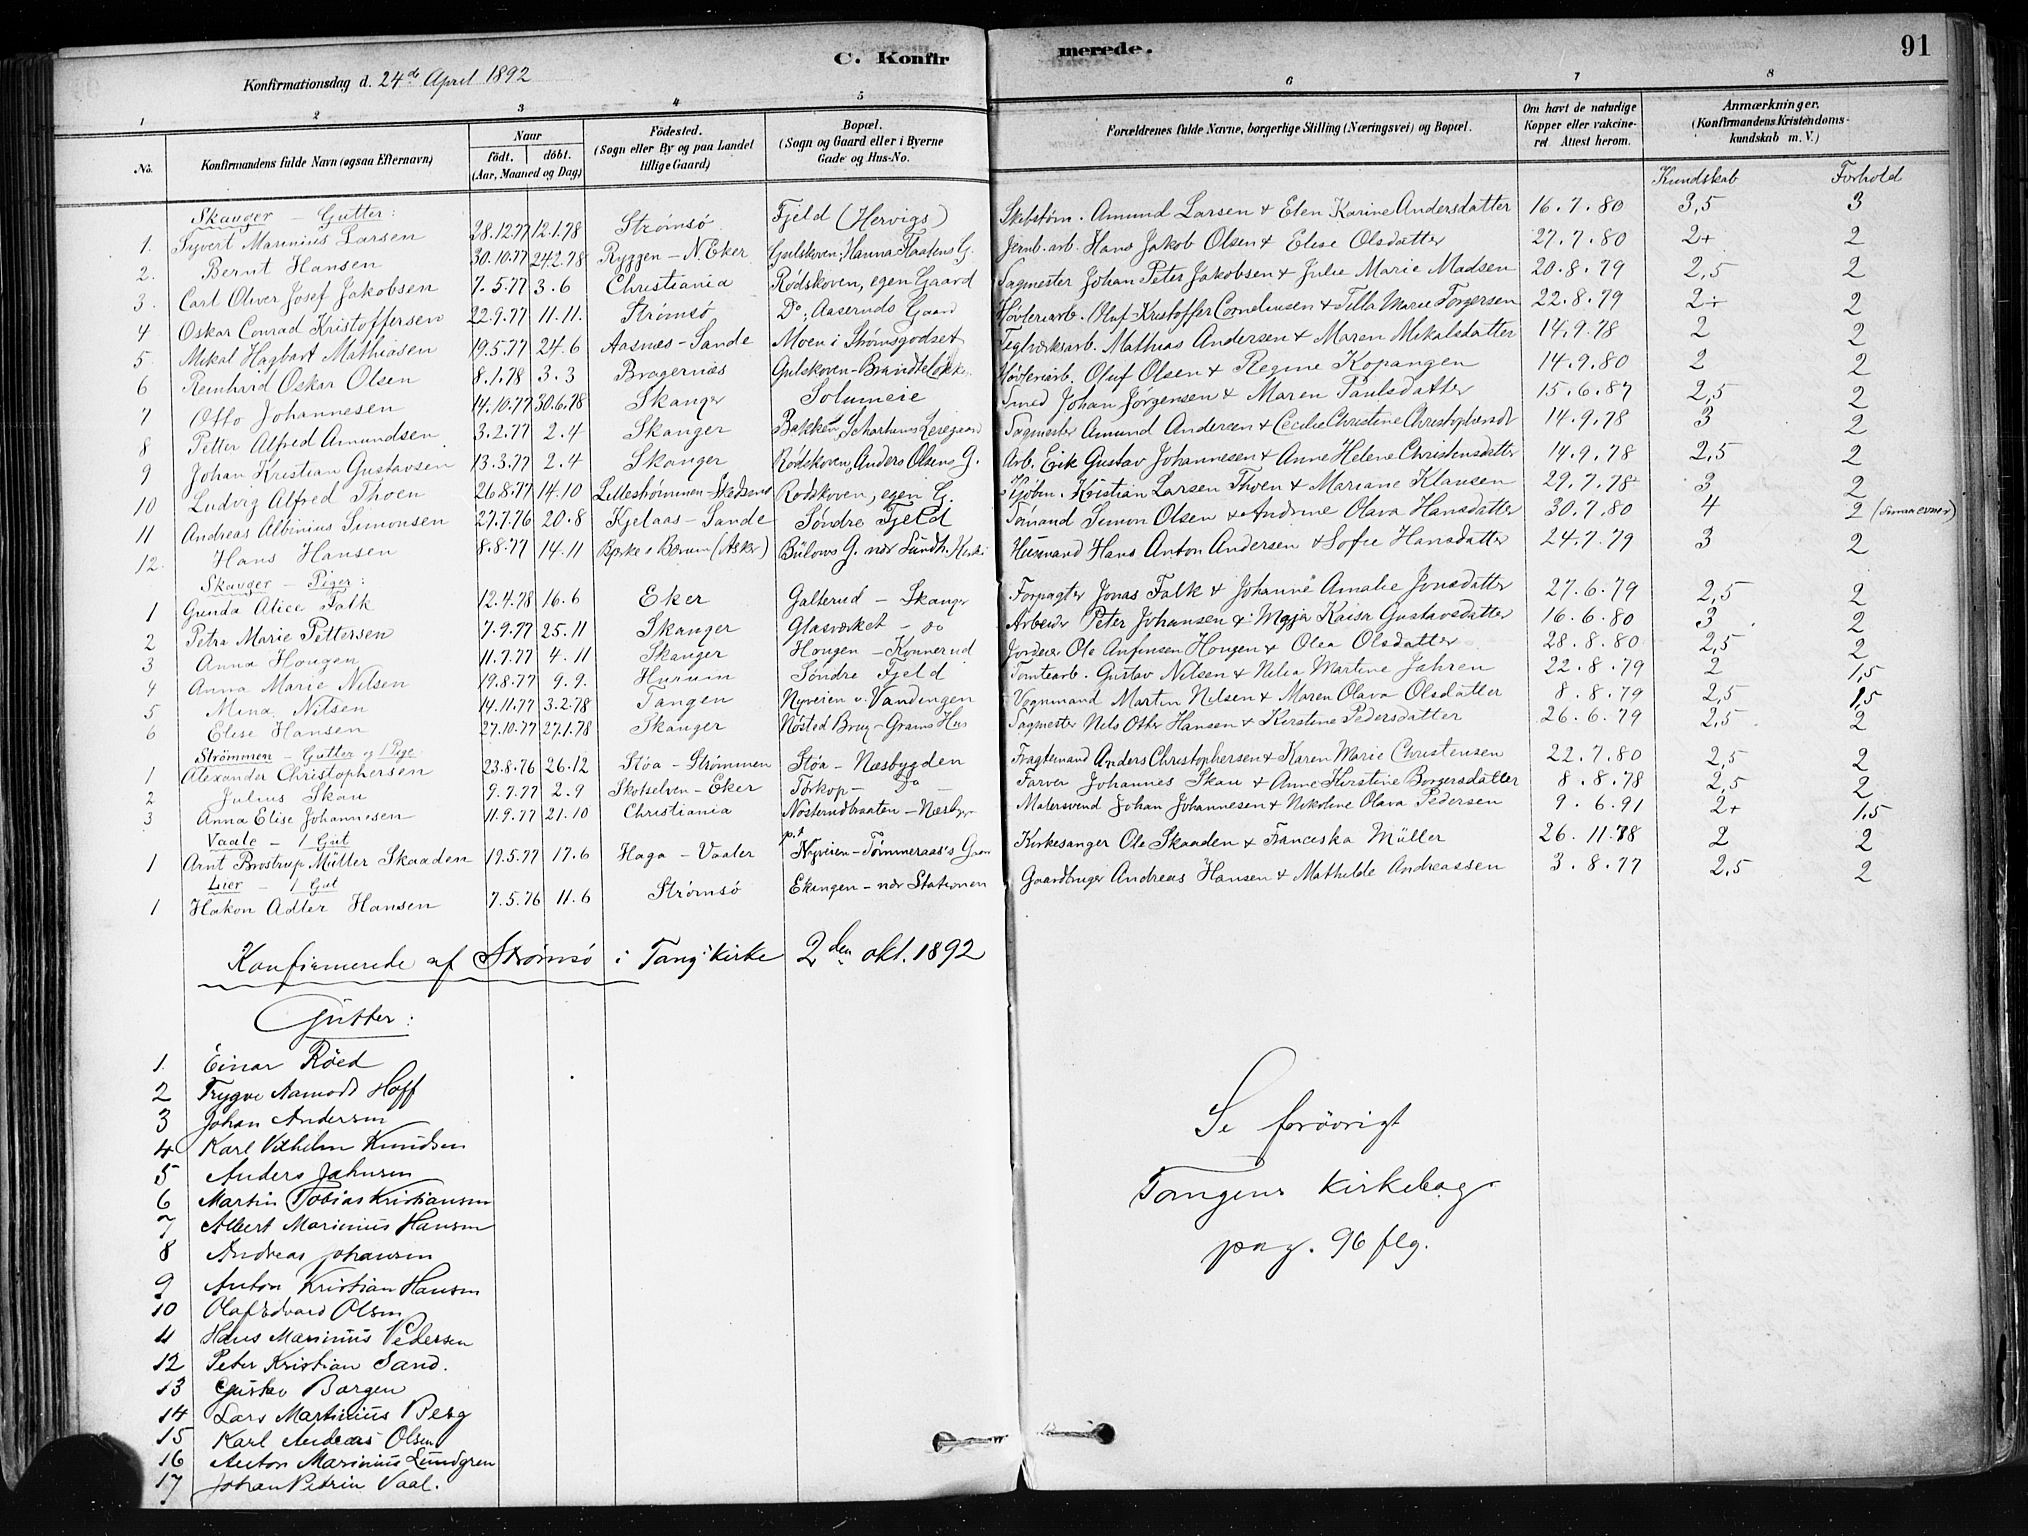 C. Konfir
merede.
91
Konfirmationsdag d. 24de April 1892
1 2 3 4 5 6 7 8
No.
Konfirmandens fulde Navn (ogsaa Efternavn)
Naar
födt. döbt.
(Aar, Maaned og Dag)
Födested.
(Sogn eller By og paa Landet
tillige Gaard)
Bopæl.
(Sogn og Gaard eller i Byerne
Gade og Hus-No.
Forældrenes fulde Navne, borgerlige Stilling (Næringsvei) og Bopæl.
Om havt de naturlige
Kopper eller vakcine-
ret. Attest herom.
Anmærkninger.
(Konfirmandens Kristendoms-
kundskab m. V.)
Kundskab Forhold
Skauger – Gutter:
1. Syvert Marinius Larsen 28.12.77 12.1.78 Strømsø Fjeld (Hervigs) Amund Larsen + Elen Karine Andersdatter 16.7.80 3,5 3
2. Bernt Hansen 30.10.77 24.2.78 Ryggen – N. Eker Gulskoven, Hanna Flaatens G. Jernb. arb. Hans Jakob Olsen + Elise Olsdatter 27.7.80 2+ 2
3. Carl Oliver Josef Jakobsen 7.5.77 3.6 Christiania Rødskoven, egen Gaard Sagmester Johan Peter Jakobsen + Julie Marie Madsen 20.8.79 2,5 2
4 Oskar Conrad Kristoffersen 22.9.77 11.11. Strømsø Do, Aaseruds Gaard Høvleriarb. Oluf Kristoffer Corneliussen + Marie Torgersen 22.8.79 2+ 2
5 Mikal Hagbart Mathiasen 19.5.77 24.6 Aasnæs – Sande Moen i Strømsgodset Teglværksarb. Mathias Andersen + Maren Mikalsdatter 14.9.78 2 2
6 Reinhard Oskar Olsen 8.1.78 3.3 Bragernæs Gulskoven – Høvleriarb. Oluf Olsen + Regine Kopangen 14.9.80 2 2
7 Otto Johannesen 14.10.77 30.6.78 Skauger Solumeie Smed Johan Jörgensen + Maren Paulsdatter 15.6.87 2,5 2
8 Petter Alfred Amundsen 3.2.77 2.4 Skauger Bakken, Sagmester Amund Andersen + Cecilie Christine 14.9.78 3 2
9 Johan Kristian Gustavsen 13.3.77 2.4 Skauger Rødskoven, Anders Olsens G. Arb. Erik Gustav Johannesen + Anne Helene Christensdatter 14.9.78 2,5 2
10 Ludvig Alfred Thoen 26.8.77 14.10 Rødskoven, egen G. Kristian Larsen Thoen + Mariane Klausen 29.7.78 3 2
11 Andreas Albinius Simonsen 27.7.76 20.8 Kjelaas – Sande Søndre Fjeld Simon Olsen + Andrine Olava Hansdatter 30.7.80 4 2 (smaa evner)
12. Hans Hansen 8.8.77 14.11 Bærum (Asker) Bülows G. nær Husmand Hans Anton Andersen + Sofie Hansdatter 24.7.79 3 2
Skauger – Piger:
1 Gunda Alice Falk 12.4.78 16.6 Eker Galterud – Skauger Forpagter Jonas Falk + Johanne Amalie Jonasdatter 27.6.79 2,5 2
2 Petra Marie Pettersen 7.9.77 25.11 Skauger Glasværket – do Arbeider Peter Johansen + Maja Kaisa Gustavsdatter 16.6.80 3 2
3 Anna Hougen 11.7.77 4.11 Skauger Hougen – Konnerud Ole Hougen + Olea Olsdatter 28.8.80 2,5 2
4 Anna Marie Nilsen 19.8.77 9.9. Hurum Søndre Fjeld Tomtearb. Gustav Nilsen + Nilia Martine Jahren 22.8.79 2 1,5
5 Mina Nilsen 14.11.77 3.2.78 Tangen Nyveien v. Vandingen Vognmand Martin Nilsen + Maren Olava Olsdatter 8.8.79 2,5 1,5
6 Elise Hansen 27.10.77 27.1.78 Skauger Nøsted Brug – Grams Hus Sagmester Nels Otter Hansen + Kirstine Pedersdatter 26.6.79 2,5 2
Strömmen – Gutter og 1 Pige
1 Alexander Christophersen 23.8.76 26.12 Støa – Strømmen Støa – Næsbygden Fragtemand Anders Christophersen + Karen Marie Christensen 22.7.80 2,5 2
2 Julius Skau 9.7.77 2.9 Skotselven – Eker Tørkop – do – Farver Johannes Skau + Anne Kirstine Borgersdatter 8.8.78 2,5 2
3 Anna Elise Johannesen 11.9.77 21.10 Christiania Nøsterudbraaten – Næsbyg Malersvend Johan Johannesen + Nikoline Olava Pedersen 9.6.91 2+ 1,5
Vaale – 1 Gut
1 Arnt Brostrup Müller Skaaden 19.5.77 17.6 Haga – Vaaler p.t. Nyveien – Tømmeraas's Gaard Kirkesanger Ole Skaaden + Franciska Müller 26.11.78 2 2
Lier – 1 Gut
1 Hakon Adler Hansen 7.5.76 11.6 Strømsø Ekangen – nær Stationen Gaardbruger Andreas Hansen + Mathilde Andreassen 3.8.77 2,5 2
Konfirmerede af Strømsø i Tang. kirke 2den okt. 1892
Gutter:
1. Einar Röed
2 Trygve Aamodt Hoff
3 Johan Andersen
4 Karl Vilhelm Knudsen
5 Anders Jahnsen
6 Martin Tobias Kristiansen
7 Albert Marinius Hansen
8 Andreas Johansen
9 Anton Kristian Hansen
10 Olaf Edvard Olsen
11 Hans Marinius Pedersen
12 Peter Kristian Sand.
13 Gustav Borgen
14 Lars Martinius Berg
15 Karl Andreas Olsen
16 Anton Marinius Lundgren
17 Johan Petrin Vaal.
Se forövrigt
Tangens Kirkebog
pag. 96 flg.